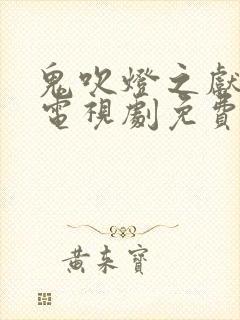 鬼吹燈之獻
電視劇免費
黃東寶